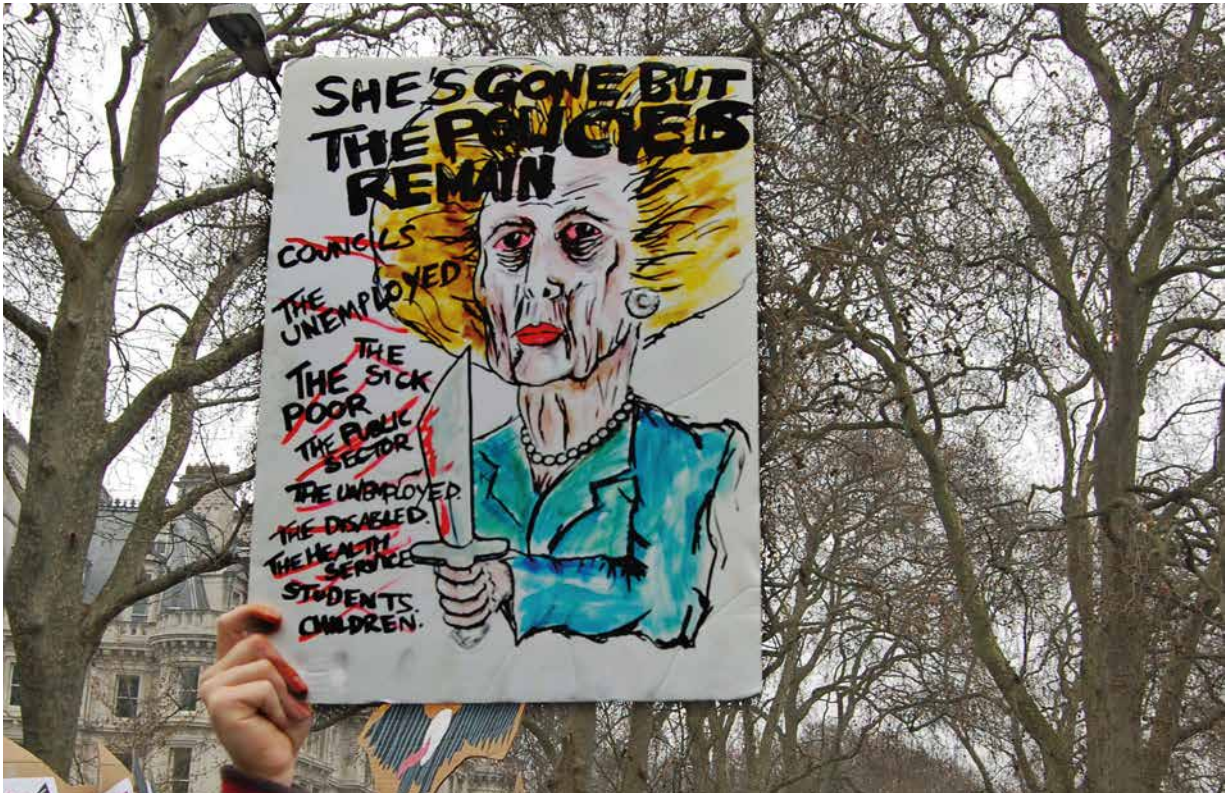 SHE'S GONE BUT
THE POLICIES
REMAIN
COUNCILS
THE
UNEMPLOYED
THE
SICK
THE
POOR
THE PUBLIC
SECTOR
THE UNEMPLOYED.
THE DISABLED.
THE HEALTH
SERVICE
STUDENTS.
CHILDREN.